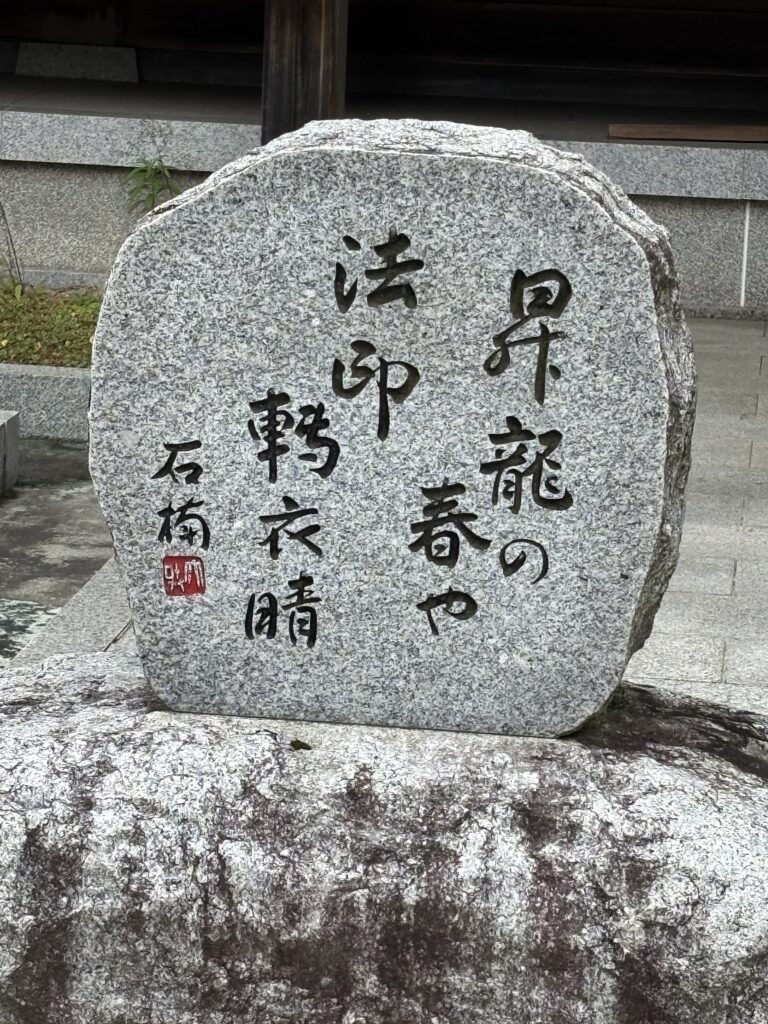 昇龍の
春や
法印
轉衣晴
石楠